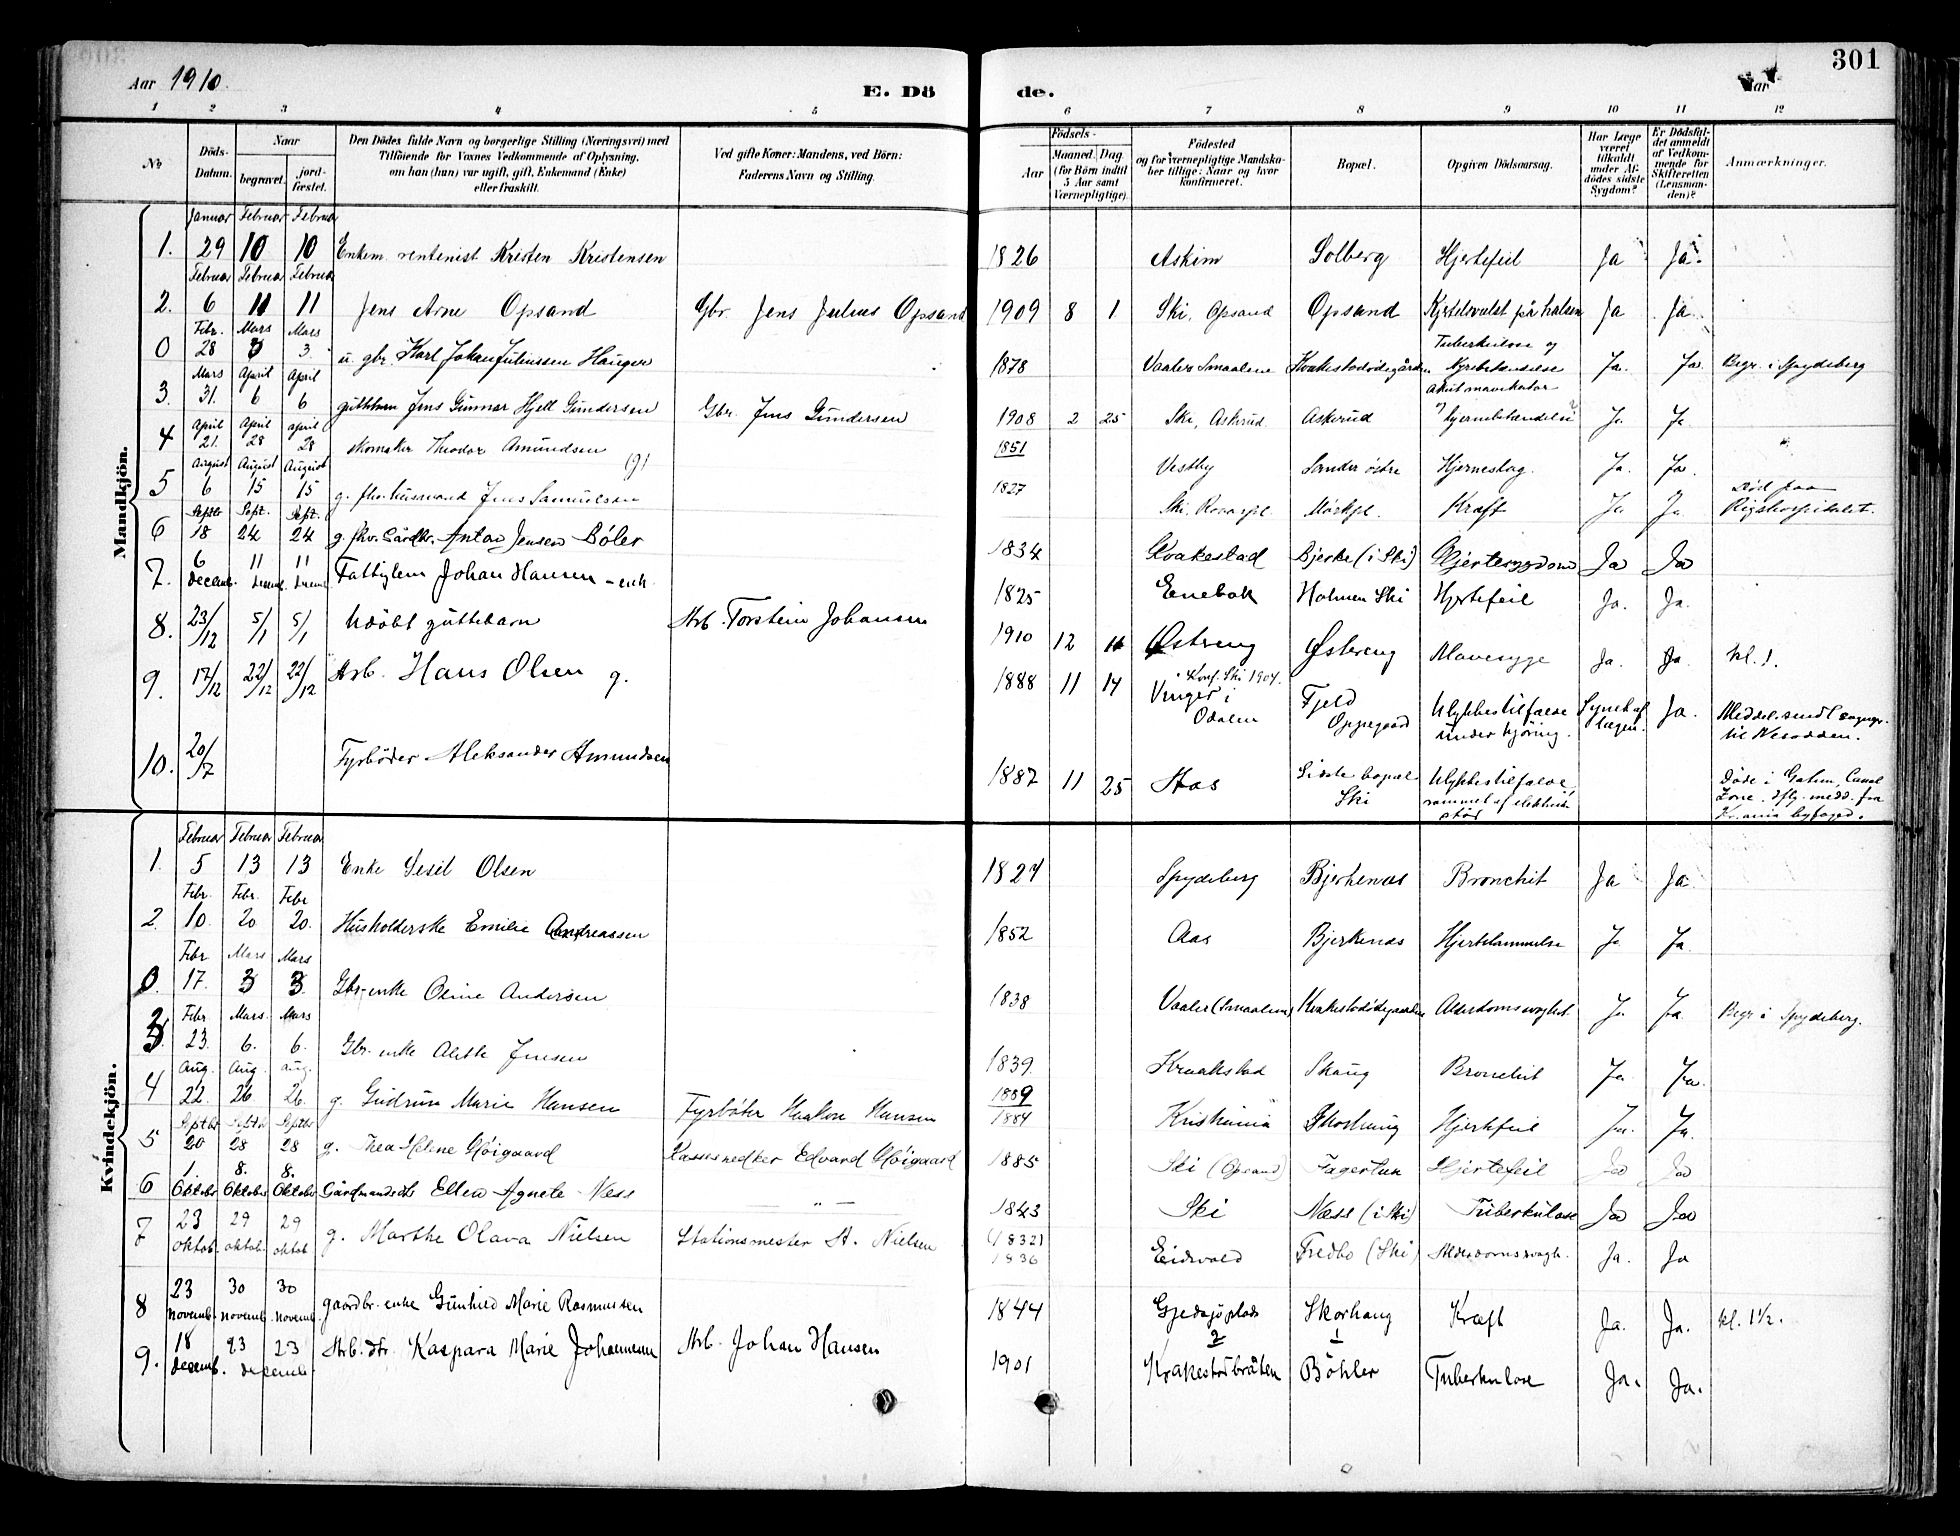 301
Aar 1910. E. Dö de. Aar
1 2 3 4 5 6 7 8 9 10 11 12
No
Döds-Datum.
Naar
begravet.
jord-fæstet.
Den Dödes fulde Navn og borgerlige Stilling (Næringsvei) med Tilföiende for Voxnes Vedkommende af Oplysning, om han (hun) var ugift, gift, Enkemand (Enke) eller fraskilt.
Ved gifte Koner: Mandens, ved Börn: Faderens Navn og Stilling.
Födsels-
Aar
Maaned. Dag.
(for Börn indtil 5 Aar samt Værnepligtige).
Födested og for værnepligtige Mandska-ber tillige: Naar og hvor konfirmeret.
Bopæl.
Opgiven Dödsaarsag.
Har Læge været tilkaldt under Af-dödes sidste Sygdom?
Er Dödsfal-det anmeldt af Vedkom-mende for Skifteretten (Lensman-den)?
Anmærkninger.
Mandkjön.
Januar Februar Februar
1. 29 10 10 Enkem. rentenist Kristen Kristensen 1826 Askim Solberg Hjertefeil Ja Ja.
Februar Februar Februar
2. 6 11 11 Jens Arne Opsand Gbr. Jens Julius Opsand 1909 8 1 Ski, Opsand Opsand Kjertelsvulst på halsen Ja Ja.
Febr. Mars Mars
0 28 3 3. u. gbr. Karl Johan Juliussen Haugen 1878 Vaaler Smaalene Tuberkulose og Ja. Ja Begr. i Spydeberg
Mars April April
3. 31. 6 6 guttebarn Jens Gunnar Hjell Gundersen Gbr. Jens Gundersen 1908 2 25 Ski, Askrud Askerud hjernebetændelse Ja Ja
April April april
4 21. 28 28 skomaker Theodor Amundsen (g) 1851 Vestby Sander östre Hjerneslag. Ja. Ja.
August August August
5 6 15 15 g. fhv. husmand Jens Samuelsen 1827 Ski Kræft Ja Ja. Död paa Rigshospitalet.
Septbr Sept. Sept.
6 18 24 24 g. fhv. Gårdbr. Anton Jensen Böler 1834 Kraakestad Bjerke (i Ski) Hjertesygdom Ja Ja
7. 6 decemb. 11 decemb. 11 decemb. Fattiglem Johan Hansen - enk. 1825 Enebak Holmen Ski Hjertefeil Ja. Ja.
8. 23/12 5/1 5/1 Udöbt guttebarn Arb. Torstein Johansen 1910 12 Östreng Östereng Mavesyge Ja. Ja. kl. 1.
9. 17/12 22/12 22/12 Arb. Hans Olsen g. 1888 11 14 Konf. Ski 1904. Vinger i Odalen Fjeld Oppegaard Ulykkestilfælde under kjöring. Synet af lægen. Ja. Meddel. sendt sognepr. til Nesodden.
10. 20/7 Fyrböder Aleksander Amundsen 1887 11 25 Aas Sidste bopæl Ski Ulykkestilfælde, rammet af elektrisk stöd Döde i Gatun, Canal Zone. iflg. medd. fra Kr.ania byfoged.
Kvindekjön.
Februar Februar Februar
1. 5 13 13 Enke Sesil Olsen 1827 Spydeberg Bjerkenæs Bronchit Ja Ja
Febr. Febr. Febr
2. 10. 20 20. Husholderske Emilie Andreassen 1852 Aas Bjerkenæs Hjertelammelse Ja Ja.
Febr Mars Mars
0. 17. 3 3. Gbr.-enke Oline Andersen 1838 Vaaler (Smaalene) Kraakstadödegaarden Alderdomssvaghet Ja Ja. Begr i Spydeberg.
Febr Mars. Mars
3. 23. 6. 6. Gbr. enke Alethe Jensen 1839. Kraakstad Skaug Bronchit Ja Ja.
Aug. Aug. aug.
4 22. 26 26. g. Gudrun Marie Hansen Fyrböter Haakon Hansen 1889 1884 Kristiania Hjertefeil Ja. Ja.
Septbr Septbr Septbr
5 20 28 28 g. Thea Helene Höigaard Kassesnedker Edvard Höigaard 1885 Ski (Opsand) Fagertun Hjertefeil Ja Ja
6 1. Oktober 8. Oktober 8. Oktober Gårdmandsdt. Ellen Agnete Næss — " — 1843 Ski Næss (i Ski) Tuberkulose Ja Ja
7 23 oktob. 29 oktob. 29 oktob g. Marthe Olava Nielsen Stationsmester A. Nielsen (1832) 1836 Eidsvold Fredbo (Ski) Alderdomssvagh. Ja. Ja
8 23 novemb. 30 novemb. 30 novemb. gaardbr. enke Gunhild Marie Rasmussen 1844 Gjedsjöplads Skorhaug Kræft Ja. Ja. kl. 1½.
9. 18 decemb. 23 23 decemb. Arb. dtr. Kaspara Marie Johansen Arb. Johan Hansen 1901 Krakestadbråten Böhler Tuberkulose Ja. Ja.